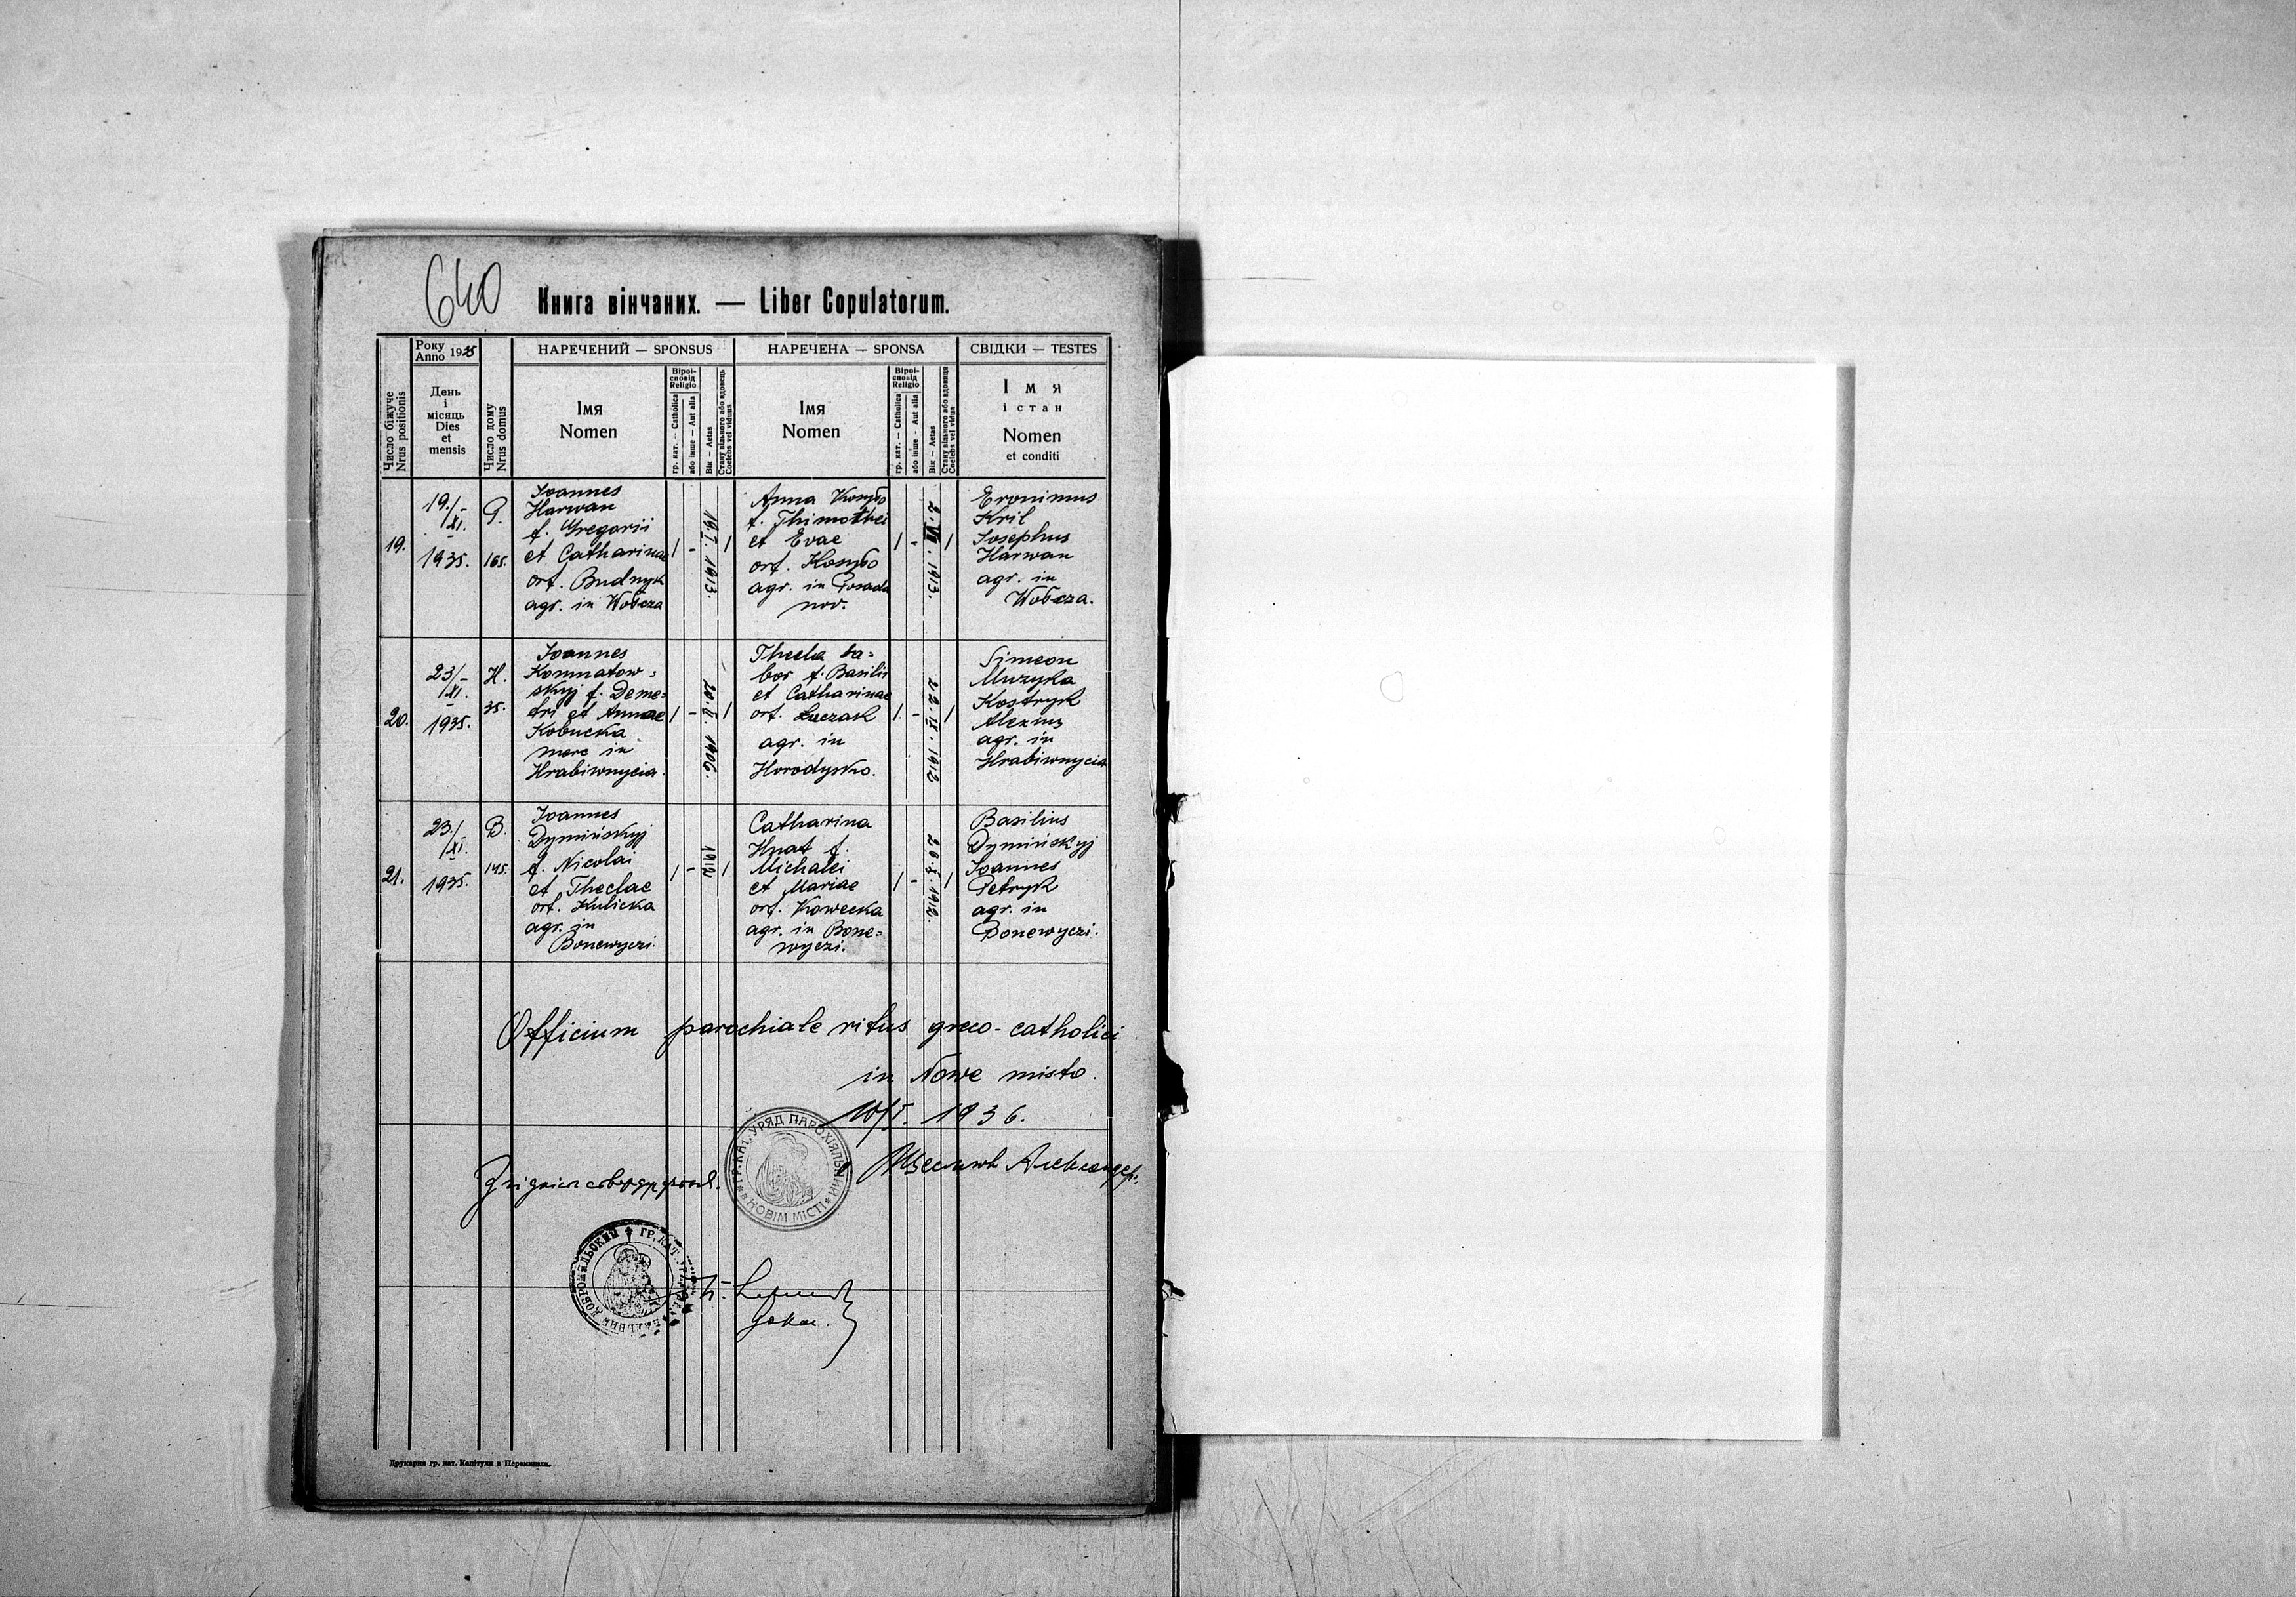 640
Книга вінчаних. — Liber Copulatorum.
Число біжуче
Nrus positionis
Року
Anno 1935
День
і
місяць
Dies
et
mensis
Число дому
Nrus domus
НАРЕЧЕНИЙ — SPONSUS
Імя
Nomen
Віроі-
сповід
Religio
гр. кат. — Catholica
або інше — Aut alia
Вік — Aetas
Стану вільного або вдовець
Coelebs vel viduus
НАРЕЧЕНА — SPONSA
Імя
Nomen
Віроі-
сповід
Religio
гр. кат. — Catholica
або інше — Aut alia
Вік — Aetas
Стану вільного або вдовиця
Coelebs vel vidua
СВІДКИ — TESTES
Імя
і стан
Nomen
et conditi
19.
19./-
XI.
1935.
P.
165.
Ioannes
Harwan
f. Gregorii
et Catharinae
ort. Budnyk
agr. in Wołcza
/ -
19. I. 1913.
/
Anna Kosyło
f. Thimothei
et Evae
ort. Kosyło
agr. in Posada
nov.
/ -
2. VII. 1913.
/
Eronimus
Kril
Josephus
Harwan
agr. in
Wołcza.
20.
23/-
XI.
1935.
H.
35.
Ioannes
Komnatow=
skyj f. Deme=
tri et Annae
Kobucka
merc in
Hrabiwnycia.
/ -
20. II. 1906.
/
Thecla Sa=
bor f. Basilii
et Catharinae
ort. Łuczak
agr. in
Horodysko.
/ -
22. IX. 1912
/
Simeon
Muzyka
Kostryk
Alexius
agr. in
Hrabiwnycia
21.
23./-
XI.
1935.
B.
145.
Ioannes
Dymińskyj
f. Nicolai
et Theclae
ort. Kulicka
agr. in
Bonewyczi.
/ -
1912
/
Catharina
Hnat f.
Michalei
et Mariae
ort. Kowecka
agr. in Bone=
wyczi.
/ -
26. I. 1912.
/
Basilius
Dymińskyj
Ioannes
Petryk
agr. in
Bonewyczi.
Officium parochiale ritus greco-catholici
in Nowe misto.
10/I. 1936.
ГР. КАТ. УРЯД ПАРОХІЯЛЬНИЙ
В НОВІМ МІСТІ
Александер.
ДОБРОМИЛЬСКИЙ ГР. КАТ. УРЯД
Друкарня гр. кат. Капітули в Перемишли.